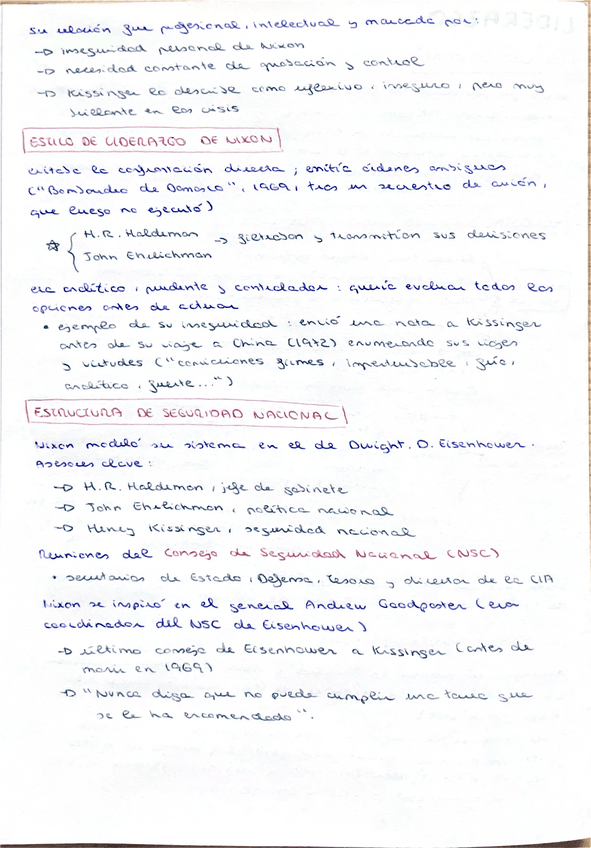 su relación fue profesional, intelectual y marcada por:
→ inseguridad personal de Nixon
→ necesidad constante de aprobación y control
→ Kissinger lo describe como reflexivo, inseguro, pero muy
brillante en las crisis
ESTILO DE LIDERAZGO DE NIXON
evitaba la confrontación directa; emitía órdenes ambiguas
("Bombardeo de Damasco", 1969, tras un secuestro de avión,
que luego no ejecutó)
☆ { H.R. Haldeman → filtraban y transmitían sus decisiones
John Ehrlichman
era analítico, prudente y controlador: quería evaluar todas las
opciones antes de actuar
• ejemplo de su inseguridad: envió una nota a Kissinger
antes de su viaje a China (1972) enumerando sus
y virtudes ("convicciones firmes, imperturbable, frío,
analítico, fuerte...")
ESTRUCTURA DE SEGURIDAD NACIONAL
Nixon modeló su sistema en el de Dwight. D. Eisenhower.
Asesores clave:
→ H.R. Haldeman, jefe de gabinete
→ John Ehrlichman, política nacional
→ Henry Kissinger, seguridad nacional
Reuniones del Consejo de Seguridad Nacional (NSC)
• secretarios de Estado, Defensa, Tesoro y director de la CIA
Nixon se inspiró en el general Andrew Goodpaster (era
coordinador del NSC de Eisenhower)
→ último consejo de Eisenhower a Kissinger (antes de
morir en 1969)
→ "Nunca diga que no puede cumplir una tarea que
se le ha encomendado".